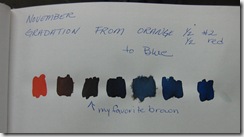 November
Gradation from orange 1/2 #2
to Blue 1/2 red
my favorite brown